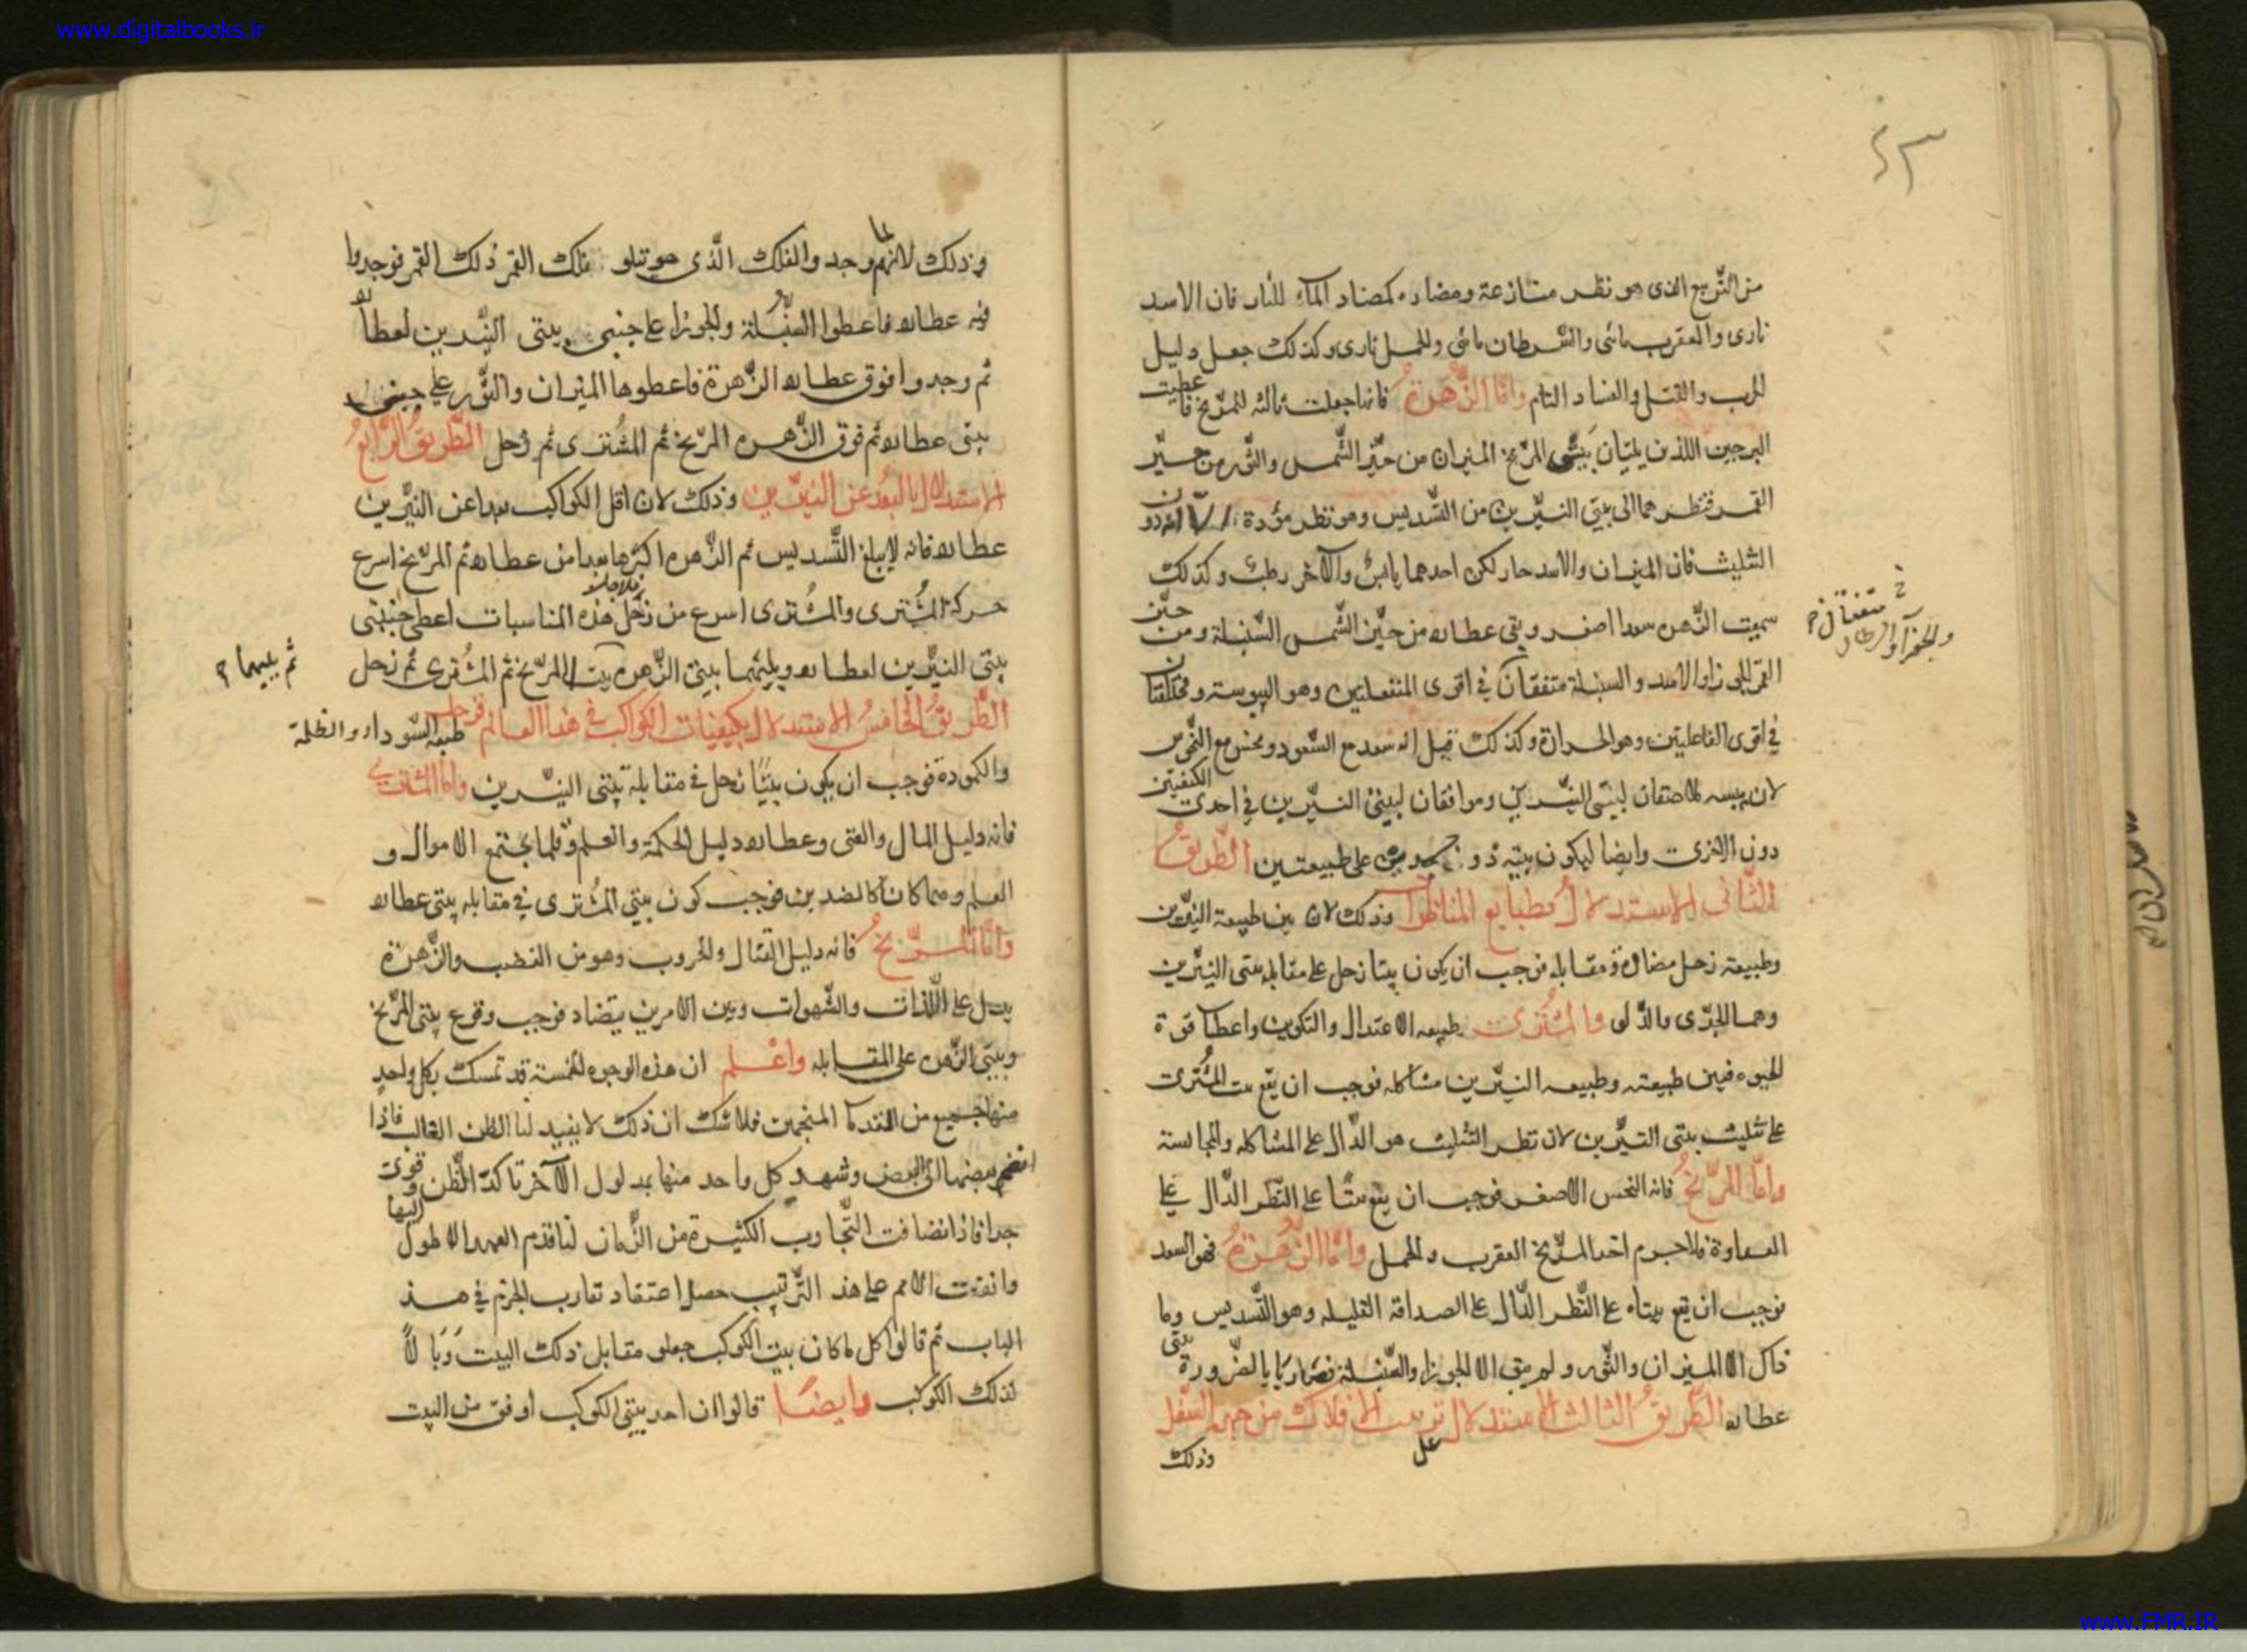 www.digitalbooks.ir
من التربيع الذى هو نظر منازعة ومضاده كمضاد الماء للنار فان الاسد
نارى والعقرب مائى والسرطان مائى والحمل نارى وكذلك جعل دليل
الحرب والقتل والفساد التام وامّا الزُّهرةُ فانها جعلت ثالثه للمرّيخ فاعطيت
البرجين اللذين يليان بيتى المرّيخ الميزان من حيّز الشّمس والثور من حيّز
القمر فنظرهما الى بيتى النيّرين من التّسديس وهو نظر مؤدة دون
التثليث فان الميزان والاسد حار لكن احدهما يابس والآخر رطب وكذلك
سميت الزهره سعدا اصغر وبقى عطارد من حيّز الشّمس السّنبلة ومن حيّز
القمر الجوزا والاسد والسنبلة متفقان فى اقوى المنفعلتين وهو اليبوسة ومختلفتان
فى اقوى الفاعلتين وهو الحرارة وكذلك قيل انه سعد مع السّعود ونحس مع النّحوس
لان بيتيه ملاصقان لبيتى النيّرين وموافقان لبيتى النيّرين فى احدى الكيفيتين
دون الاخرى وايضا ليكون بيته ذو جسدين على طبيعتين الطّريقُ
الثّانى الاستدلالُ بطبايع المناظرات وذلك لان بين طبيعة النيّرين
وطبيعة زحل مضادة ومقابله فوجب ان يكون بيتا زحل على مقابلة بيتى النيّرين
وهما الجدى والدّلو والمُشترى طبيعه الاعتدال والتكوين واعطا قوة
الحيوه فبين طبيعته وطبيعه النيّرين مشاكله فوجب ان يقع بيت المُشترى
على تثليث بيتى النيّرين لان نظر التثليث هو الدّال على المشاكله والمجانسة
وامّا المرّيخُ فانه النحس الاصغر فوجب ان يقع بيتا على النّظر الدّال على
العداوة فلاجرم اخد المرّيخ العقرب والحمل وامّا الزهرةُ فهو السعد
فوجب ان يقع بيتاه على النّظر الدّال على الصداقة القليله وهو التّسديس وما
ذاك الا الميزان والثّور ولم يبق الا الجوزا والسّنبلة فصارتا بالضّرورة بيتى
عطارد الطّريقُ الثالث الاستدلال ترتيب الافلاك من جهة السّفل
على
وذلك
متفقان
والجوزا والسرطان
وذلك لانهم لما وجدوا الفلك الّذى هو يتلو فلك القمر ذلك القمر فوجدوا
فيه عطارد فاعطوا السنبلة والجوزا على جنبى بيتى النيّرين لعطارد
ثم وجدوا فوق عطارد الزّهرة فاعطوها الميزان والثّور على جنبى
بيتى عطارد ثم فوق الزّهره المرّيخ ثم المشترى ثم زحل الطّريقُ الرّابعُ
الاستدلال بالبُعد عن النيّرين وذلك لان اقل الكواكب بعدا عن النيّرين
عطارد فانه لا يبلغ التّسديس ثم الزّهره اكثرها بعدا من عطارد ثم المرّيخ اسرع
حركة المُشترى والمُشترى اسرع من زحل فلاجل هذه المناسبات اعطى جنبتى
بيتى النيّرين لعطارد ويليهما بيتى الزّهره بيت المرّيخ ثم المُشترى ثم زحل
ثم يليهما
الطّريقُ الخامسُ الاستدلال بكيفيات الكواكب فى هذا العالم فزحل طبعه السّوداء والظلمة
والكمودة فوجب ان يكون بيتا زحل فى مقابلة بيتى النيّرين وامّا المشترى
فانه دليل المال والغنى وعطارد دليل الحكمة والعلم وقلما يجتمع الاموال و
العلم وهما كانا كالضدين فوجب كون بيتى المُشترى فى مقابله بيتى عطارد
وامّا المرّيخُ فانه دليل القتال والحروب وهو من الغضب والزّهرة
يدل على اللّذات والشّهوات وبين الامرين يتضاد فوجب وقوع بيتى المرّيخ
وبيتى الزّهره على المقابله واعْلم ان هذه الوجوه الخمسة قد تمسك بكل واحد
منها جميع من القدما المنجمين فلا شك ان ذلك لا يفيد لنا الظن الغالب فاذا
انضم بعضها الى البعض وشهد كل واحد منها بمدلول الآخر تاكدّ الظّن وقوى
جدا فاذا انضافت اليها التّجارب الكثيرة من الزّمان لنا قدم العهد الاطول
واتفقت الامم على هذ التّرتيب حصل اعتقاد تقارب الجزم فى هذ
الباب ثم قالوا كل ما كان بيت الكوكب جعلو مقابل ذلك البيت وَبَالاً
لذلك الكوكب وايضًا قالوا ان احد بيتى الكوكب اوفق من البيت
www.FMR.IR